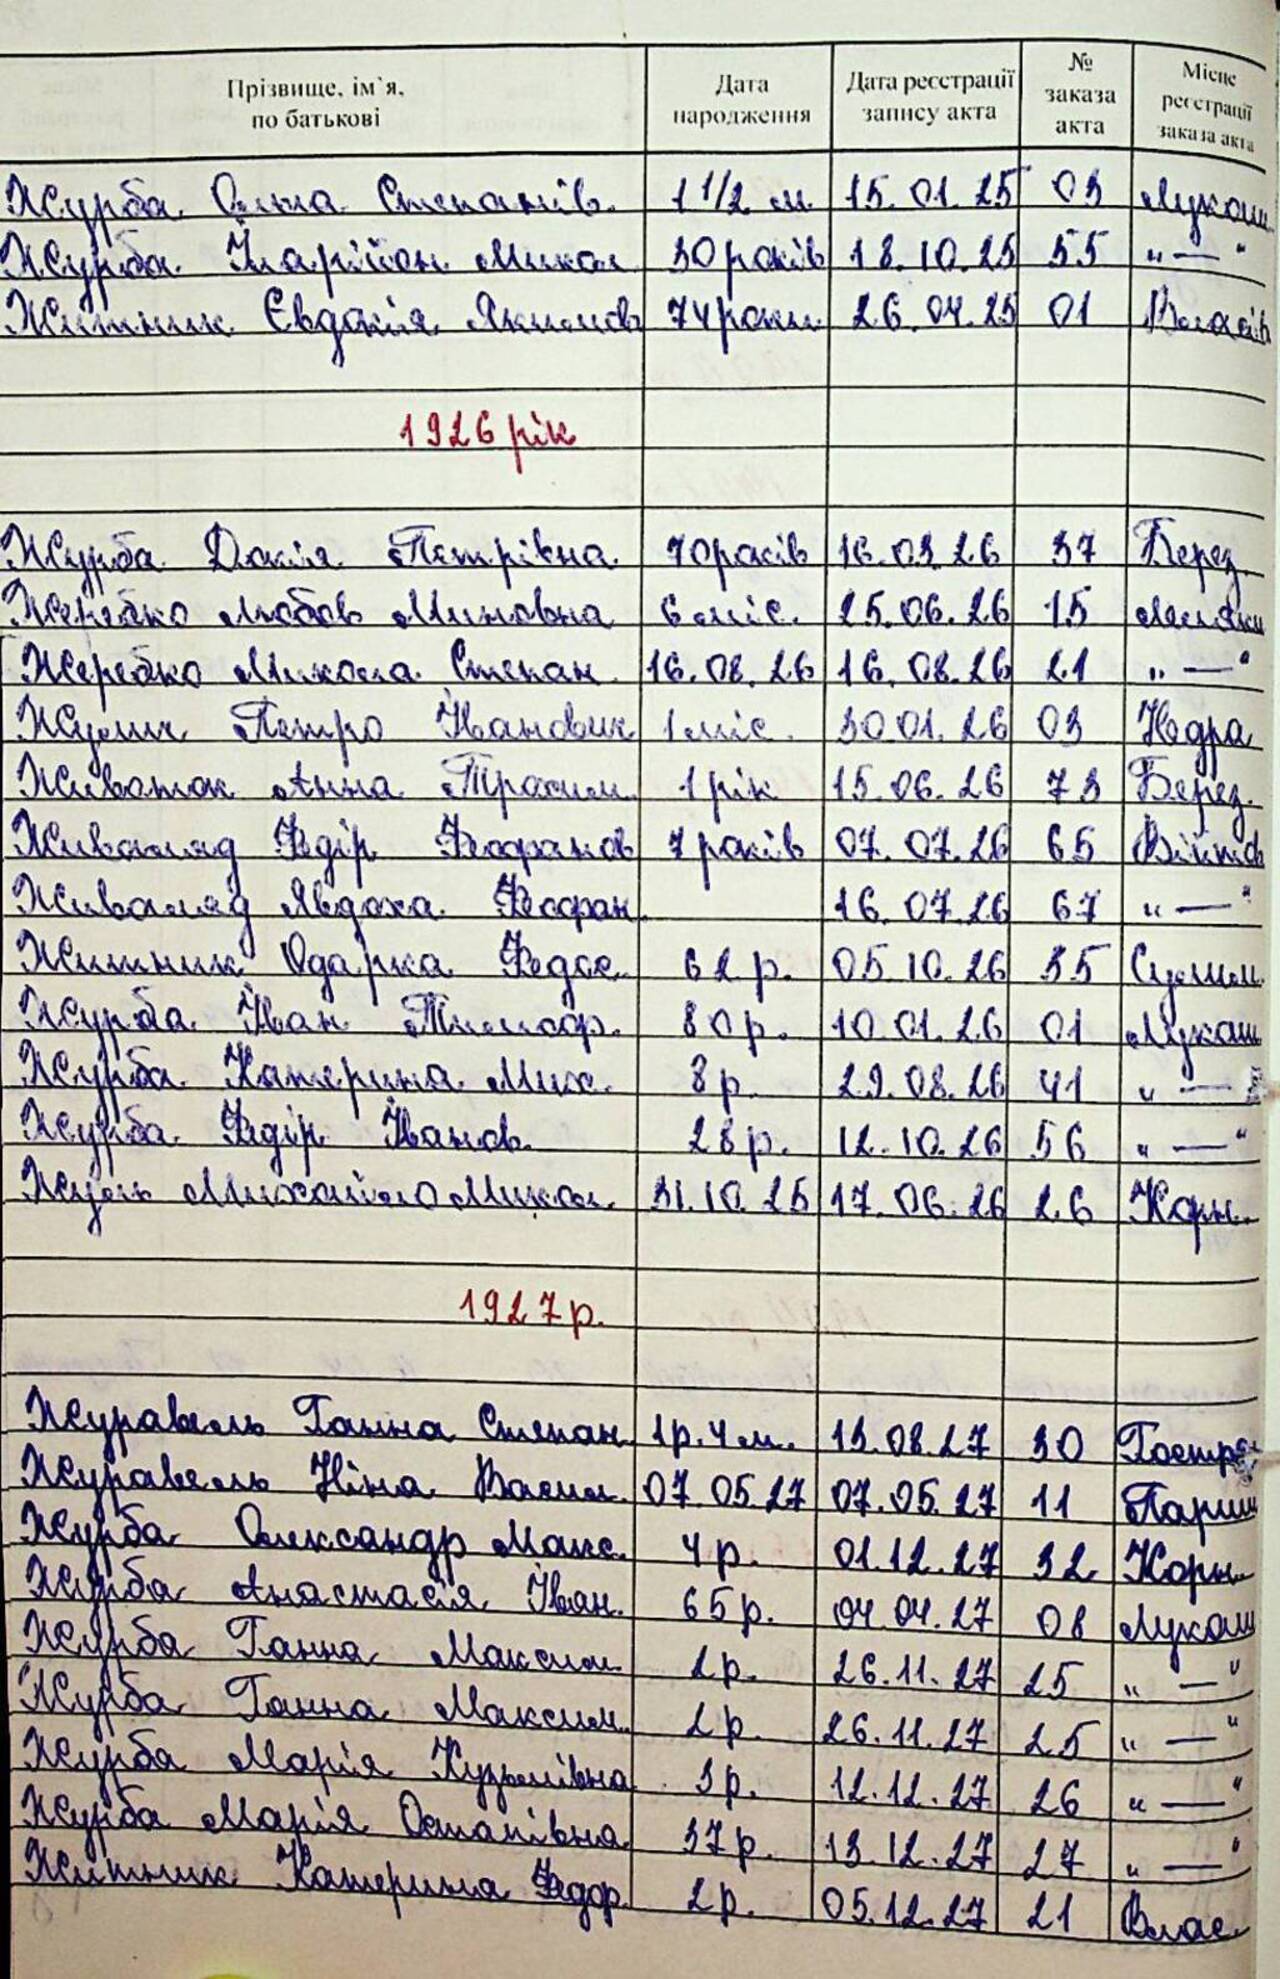 Прізвище, ім`я, по батькові Дата народження Дата реєстрації запису акта № заказа акта Місце реєстрації заказа акта
Журба Ольга Степанів. 1 1/2 м. 15.01.25 03 Лукаш
Журба Іларійон Микол 30 років 18.10.25 55 "—"
Житник Євдокія Якимов 74 роки 26.04.25 01 Власів
1926 рік
Журба Докія Петрівна 70 років 16.03.26 37 Берез.
Жеребко Любов Миновна 6 міс. 25.06.26 15
Жеребко Микола Степан 16.08.26 16.08.26 21 "—"
Петро Іванович 1 міс. 30.01.26 03 Недра
Анна Трасим 1 рік 15.06.26 73 Берез.
Живоляд Федір Феофанов 7 років 07.07.26 65 Війтів
Живоляд Явдоха Феофан 16.07.26 67 "—"
Житник Одарка Федос. 62 р. 05.10.26 35 Сулим.
Журба Іван Тимоф. 80 р. 10.01.26 01 Лукаш
Журба Катерина Мих. 8 р. 29.08.26 41 "—"
Журба Федір Іванов. 28 р. 12.10.26 56 "—"
Михайло Микол. 31.10.25 17.06.26 26 Корн.
1927 р.
Журавель Ганна Степан 1 р. 4 м. 13.08.27 30
Журавель Ніна Васил 07.05.27 07.05.27 11 Париш
Журба Олександр Макс. 4 р. 01.12.27 32 Корн.
Журба Анастасія Іван. 65 р. 04.04.27 08 Лукаш
Журба Ганна Максим 2 р. 26.11.27 25 "—"
Журба Ганна Максим. 2 р. 26.11.27 25 "—"
Журба Марія Кузьмівна 3 р. 12.12.27 26 "—"
Журба Марія Остапівна 37 р. 13.12.27 27 "—"
Житник Катерина Федор. 2 р. 05.12.27 21 Влас.